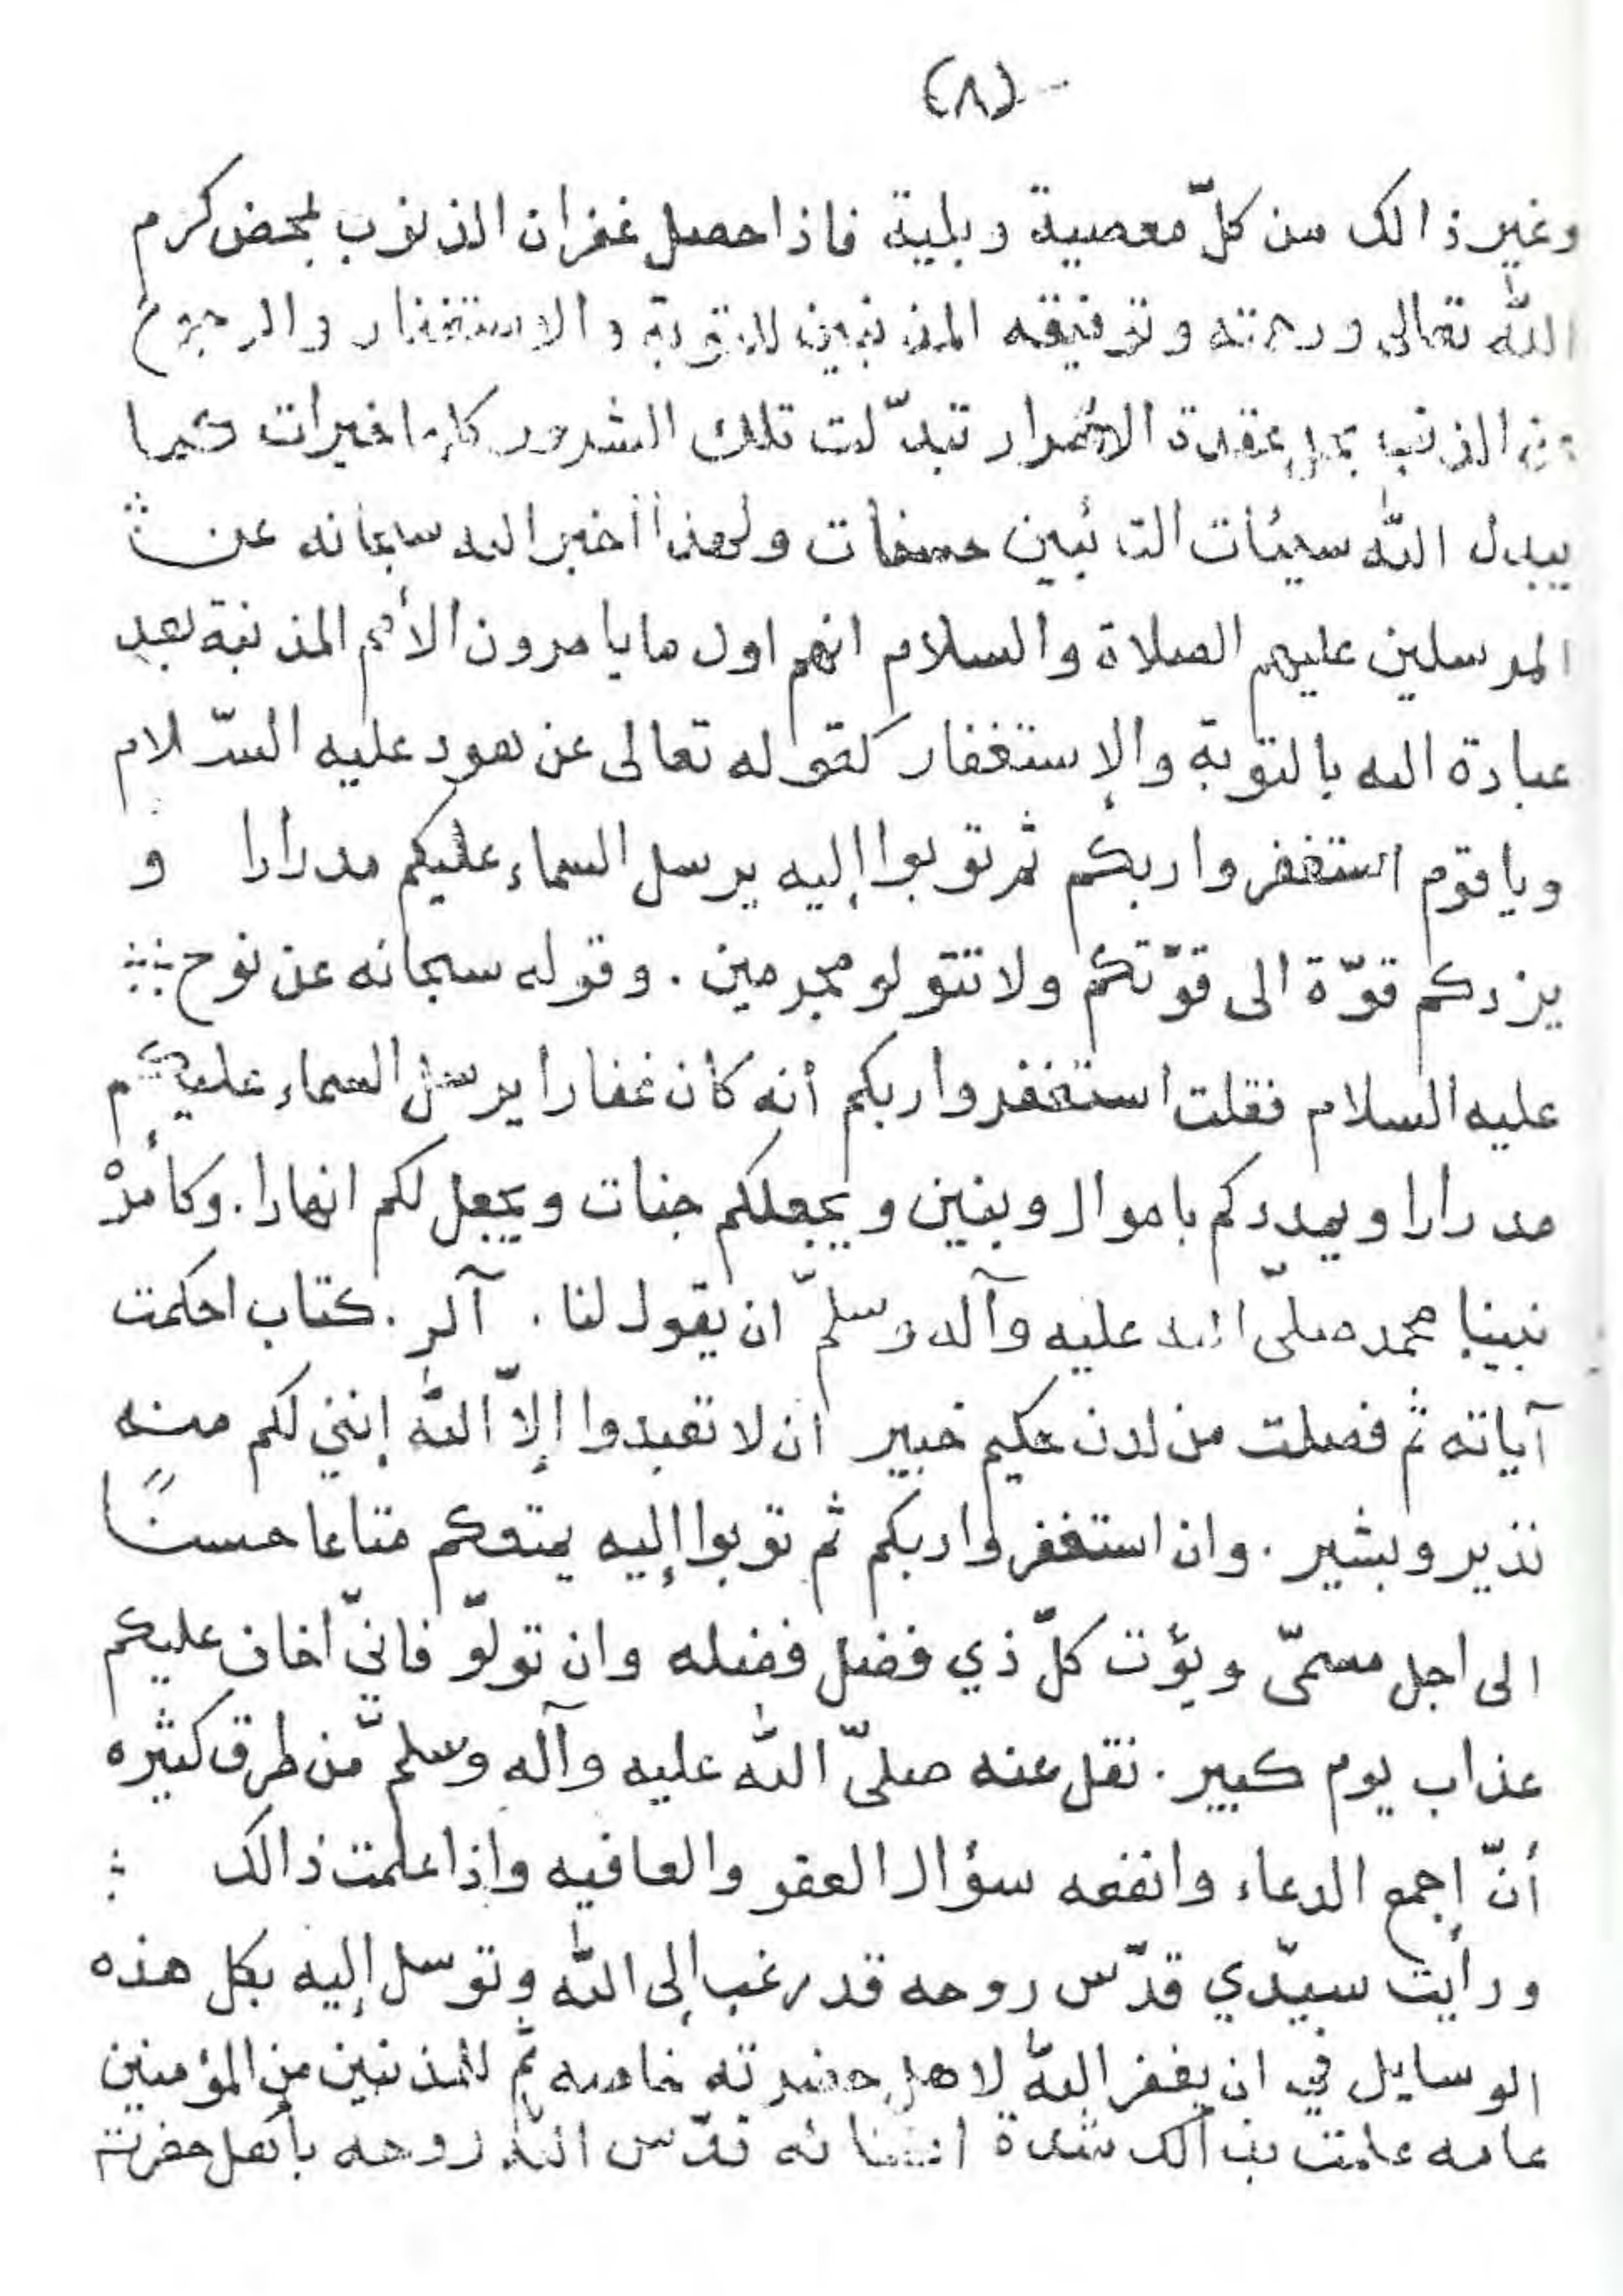 (٨)
وغير ذالك من كلّ معصية وبلية فاذا حصل غفران الذنوب بمحض كرم
الله تعالى ورحمته وتوفيقه المذنبين للتوبة والاستغفار والرجوع
عن الذنب بحل عقدة الاصرار تبدّلت تلك الشرور كلها خيرات كما
يبدل الله سيئات التائبين حسنات ولهذا أخبر الله سبحانه عن
المرسلين عليهم الصلاة والسلام انهم اول ما يامرون الأمم المذنبة بعد
عبادة الله بالتوبة والإستغفار كقوله تعالى عن هود عليه السّلام
ويا قوم استغفروا ربكم ثم توبوا إليه يرسل السماء عليكم مدرارا و
يزدكم قوّة الى قوّتكم ولا تتولو مجرمين . وقوله سبحانه عن نوح
عليه السلام فقلت استغفروا ربكم أنه كان غفارا يرسل السماء عليكم
مدرارا ويمددكم باموال وبنين ويجعلكم جنات ويجعل لكم انهارا . وكأمرْ
نبينا محمد صلّى الله عليه وآله وسلمّ ان يقول لنا . آلر . كتاب احكمت
آياته ثم فصلت من لدن حكيم خبير ان لا تعبدوا إلاّ الله إنني لكم منه
نذير وبشير . وان استغفروا ربكم ثم توبوا إليه يمتعكم متاعا حسنًا
الى اجل مسمّى ويؤت كلّ ذي فضل فضله وان تولّو فانيّ اخاف عليكم
عذاب يوم كبير . نقل عنه صلىّ الله عليه وآله وسلمّ من طرق كثيره
أنّ اجمع الدعاء وانفعه سؤال العفو والعافيه وإذا علمت ذالك
ورأيت سيّدي قدّس روحه قد رغب إلى الله وتوسل إليه بكل هذه
الوسايل في ان يغفر الله لاهل حضرته خاصه ثم للمذنبين من المؤمنين
عامه علمت بذالك شدة اعتنائه قدّس الله روحه بأهل حضرته